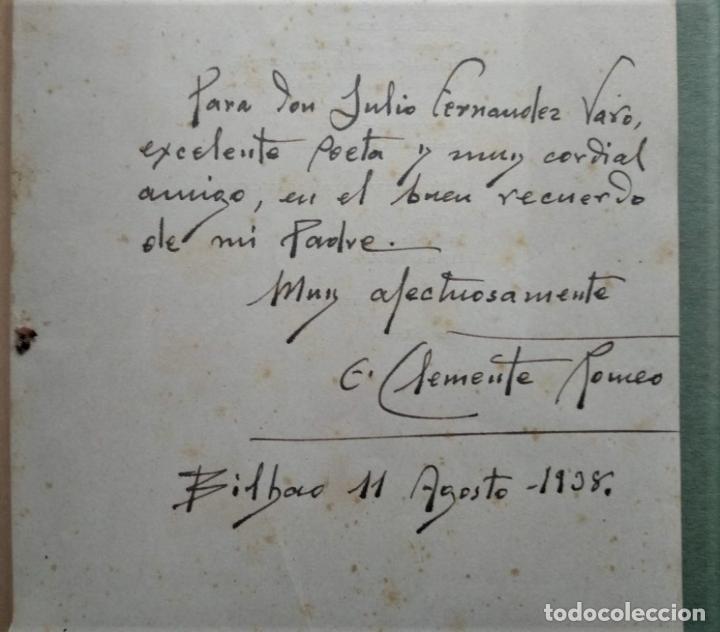 Para don Julio Fernandez Varo,
excelente Poeta y muy cordial
amigo, en el buen recuerdo
de mi Padre.
Muy afectuosamente
E. Clemente Romeo
Bilbao 11 Agosto - 1938.
todocoleccion